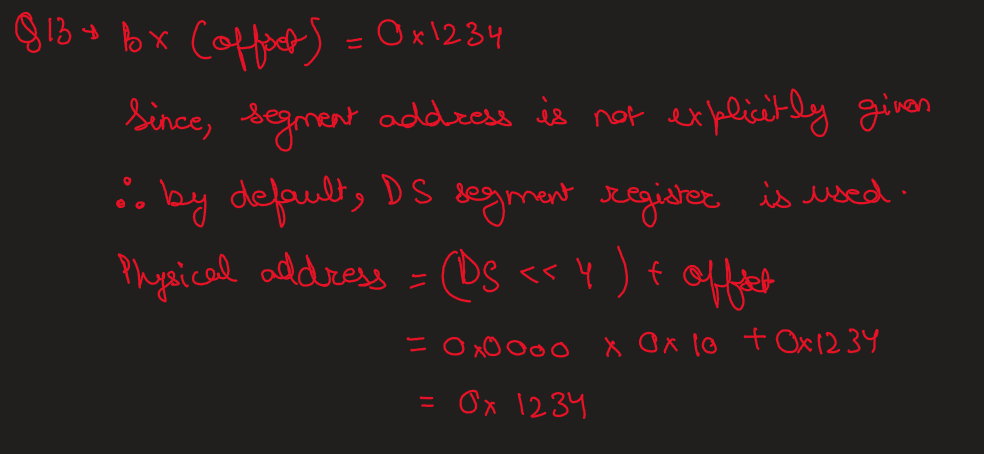 Q13 → Bx (offset) = 0x1234
Since, segment address is not explicitly given
∴ by default, DS segment register is used.
Physical address = (DS << 4) + offset
= 0x0000 x 0x10 + 0x1234
= 0x1234